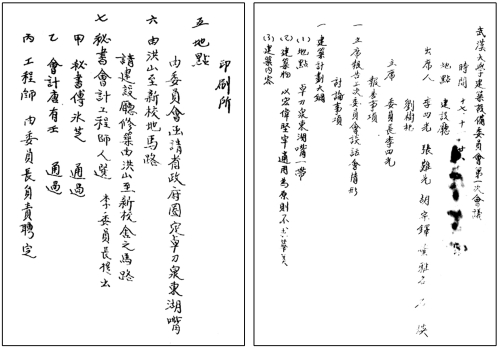 武漢大學建築設備委員會第一次會議
時間
地點 建設廳
出席人 李四光 張難先 胡宗鐸 石瑛
劉樹杞
主席 委員長李四光
報告事項
一 主席報告上次委員會談話會情形
討論事項
一 建築計劃大綱
(1)地點 卓刀泉東湖嘴一帶
(2)建築物 以宏偉堅牢適用為原則不求華美
(3)建築內容
印刷所
五 地點
由委員會函請省政府圈定卓刀泉東湖嘴
六 由洪山至新校地馬路
請建設廳修築由洪山至新校舍之馬路
七 秘書會計工程師人選 李委員長提出
甲 秘書傅 通過
乙 會計唐有壬 通過
丙 工程師 由委員長負責聘定